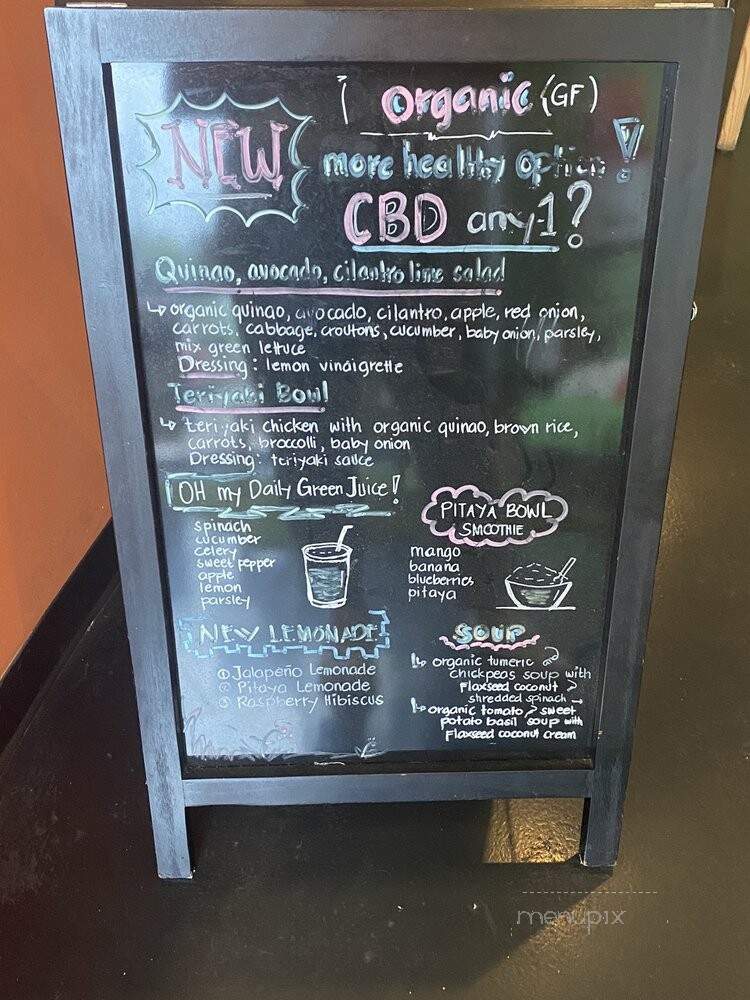 organic (GF)
NEW
more healthy option !
CBD any1?
Quinao, avocado, cilantro lime salad
organic quinao, avocado, cilantro, apple, red onion,
carrots, cabbage, croutons, cucumber, baby onion, parsley,
mix green lettuce
Dressing: lemon vinaigrette
Teriyaki Bowl
teriyaki chicken with organic quinao, brown rice,
carrots, broccolli, baby onion
Dressing: teriyaki sauce
OH my Daily Green Juice!
spinach
cucumber
celery
sweet pepper
apple
lemon
parsley
PITAYA BOWL
SMOOTHIE
mango
banana
blueberries
pitaya
NEW LEMONADE
① Jalapeño Lemonade
② Pitaya Lemonade
③ Raspberry Hibiscus
SOUP
organic tumeric
chickpeas soup with
flaxseed coconut
shredded spinach
organic tomato, sweet
potato basil soup with
flaxseed coconut cream
menupix